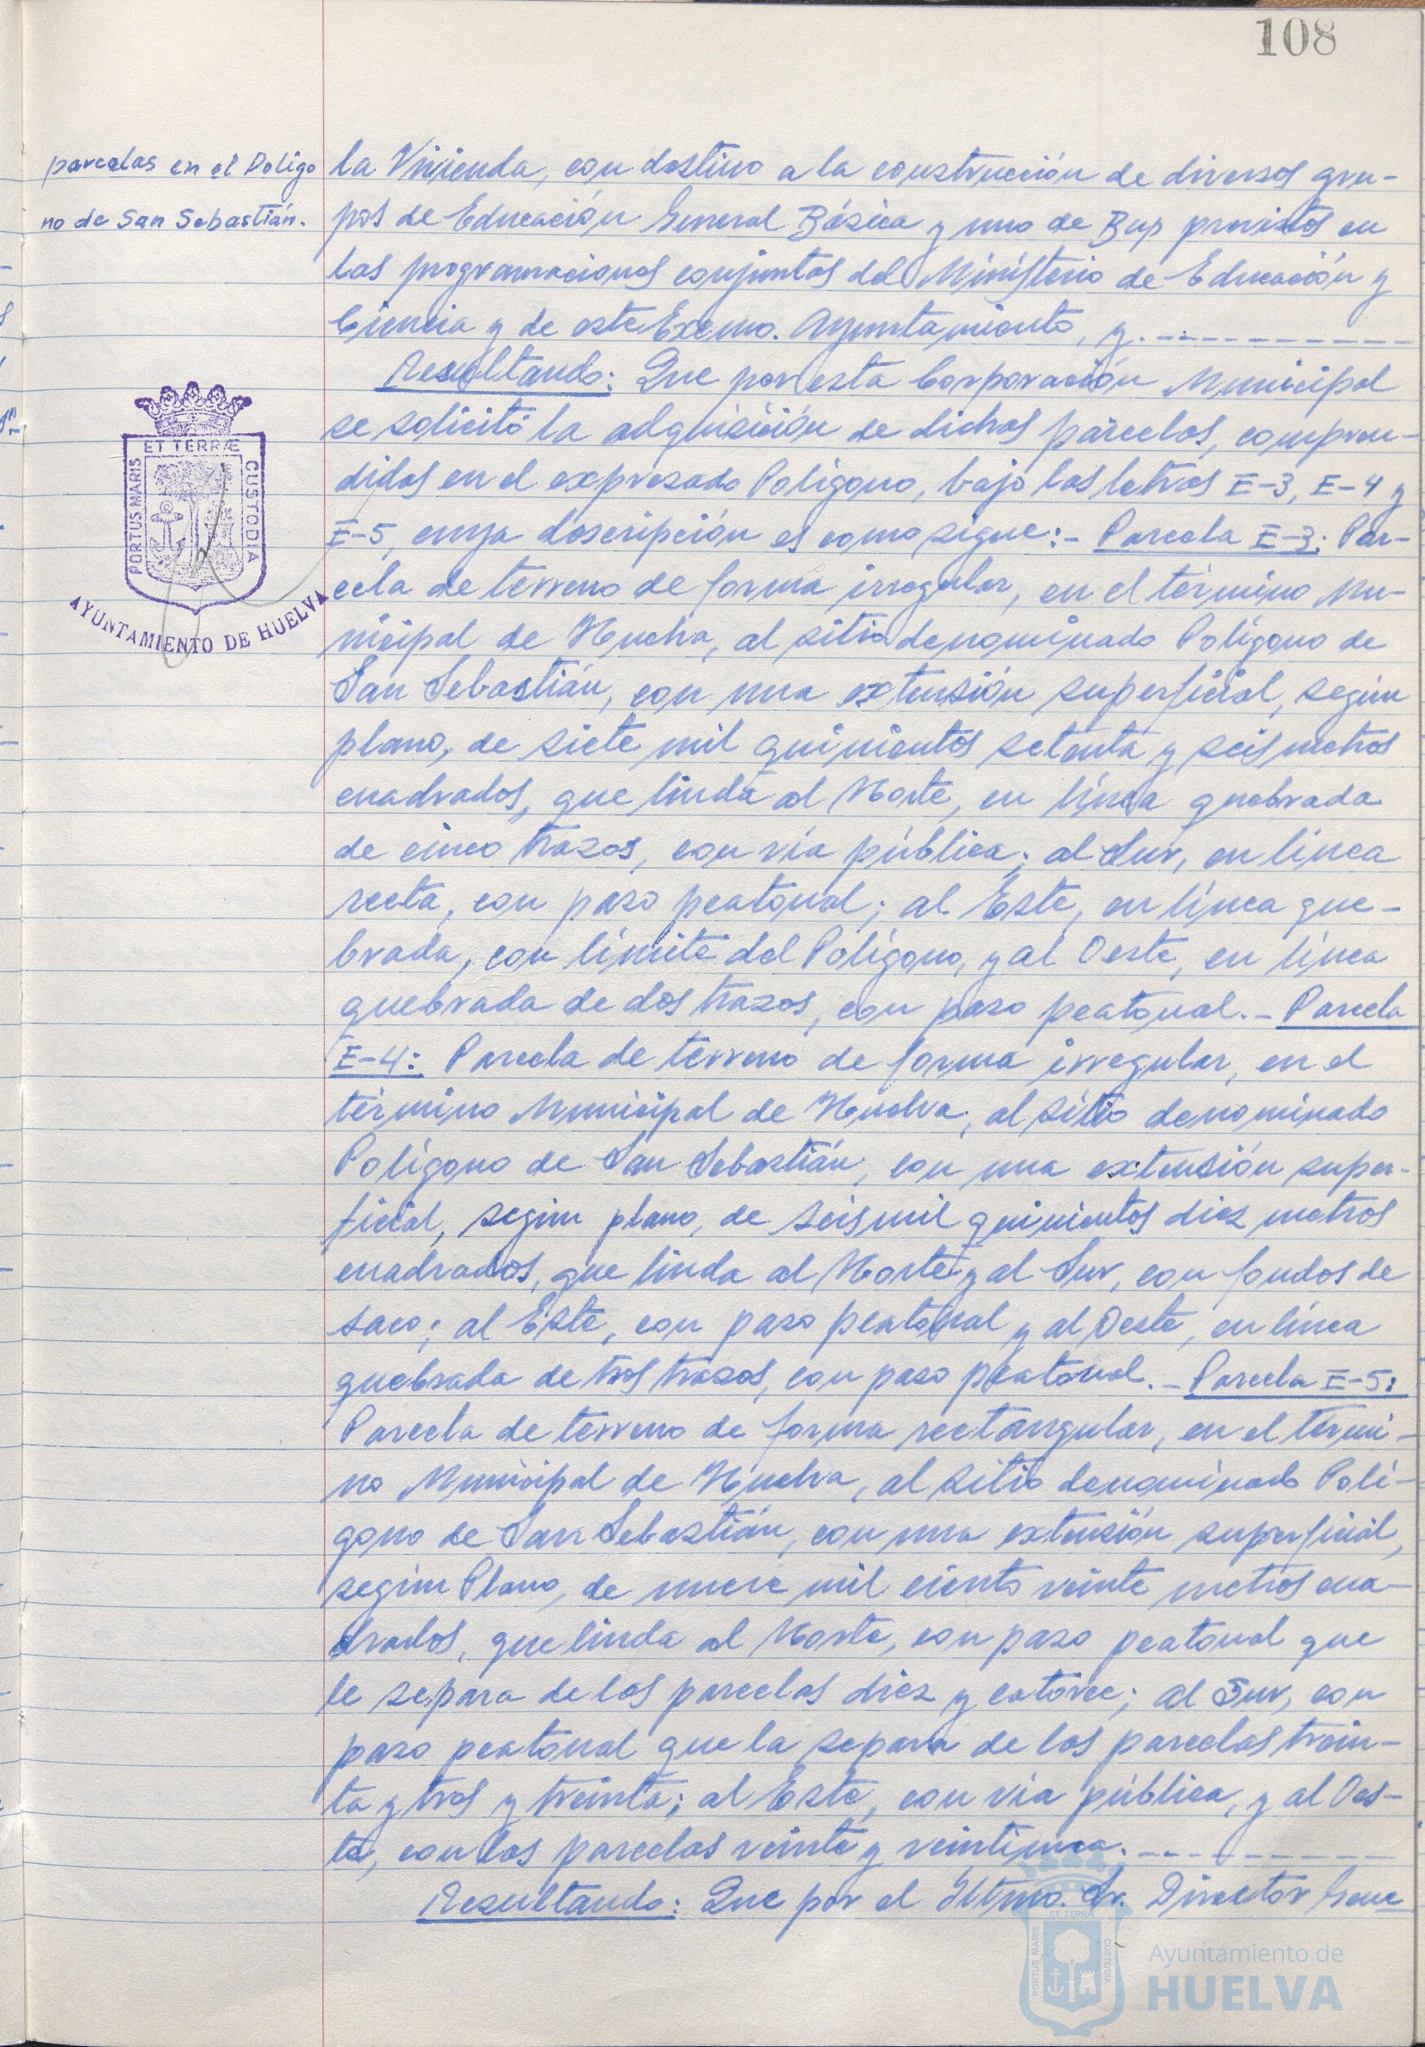 108
parcelas en el Polígo
no de San Sebastián.
ET TERRÆ
PORTUS MARIS
CUSTODIA
AYUNTAMIENTO DE HUELVA
la Vivienda, con destino a la construcción de diversos gru-
pos de Educación General Básica y uno de Bup previstos en
las programaciones conjuntas del Ministerio de Educación y
Ciencia y de este Excmo. Ayuntamiento, y.
Resultando: Que por esta Corporación Municipal
se solicitó la adquisición de dichas parcelas, compren-
didas en el expresado Polígono, bajo las letras E-3, E-4 y
E-5, cuya descripción es como sigue:- Parcela E-3: Par-
cela de terreno de forma irregular, en el término Mu-
nicipal de Huelva, al sitio denominado Polígono de
San Sebastián, con una extensión superficial, según
plano, de siete mil quinientos setenta y seis metros
cuadrados, que linda al Norte, en línea quebrada
de cinco trazos, con vía pública; al Sur, en línea
recta, con paso peatonal; al Este, en línea que-
brada, con límite del Polígono, y al Oeste, en línea
quebrada de dos trazos, con paso peatonal.- Parcela
E-4: Parcela de terreno de forma irregular, en el
término Municipal de Huelva, al sitio denominado
Polígono de San Sebastián, con una extensión super-
ficial, según plano, de seis mil quinientos diez metros
cuadrados, que linda al Norte y al Sur, con fondos de
saco; al Este, con paso peatonal y al Oeste, en línea
quebrada de tres trazos, con paso peatonal.- Parcela E-5:
Parcela de terreno de forma rectangular, en el térmi-
no Municipal de Huelva, al sitio denominado Polí-
gono de San Sebastián, con una extensión superficial,
según Plano, de nueve mil ciento veinte metros cua-
drados, que linda al Norte, con paso peatonal que
le separa de las parcelas diez y catorce; al Sur, con
paso peatonal que la separa de las parcelas trein-
ta y tres y treinta; al Este, con vía pública, y al Oes-
te, con las parcelas veinte y veintiuna.
Resultando: Que por el Iltmo. Sr. Director Gene
ET TERRÆ
PORTUS MARIS
CUSTODIA
Ayuntamiento de
HUELVA